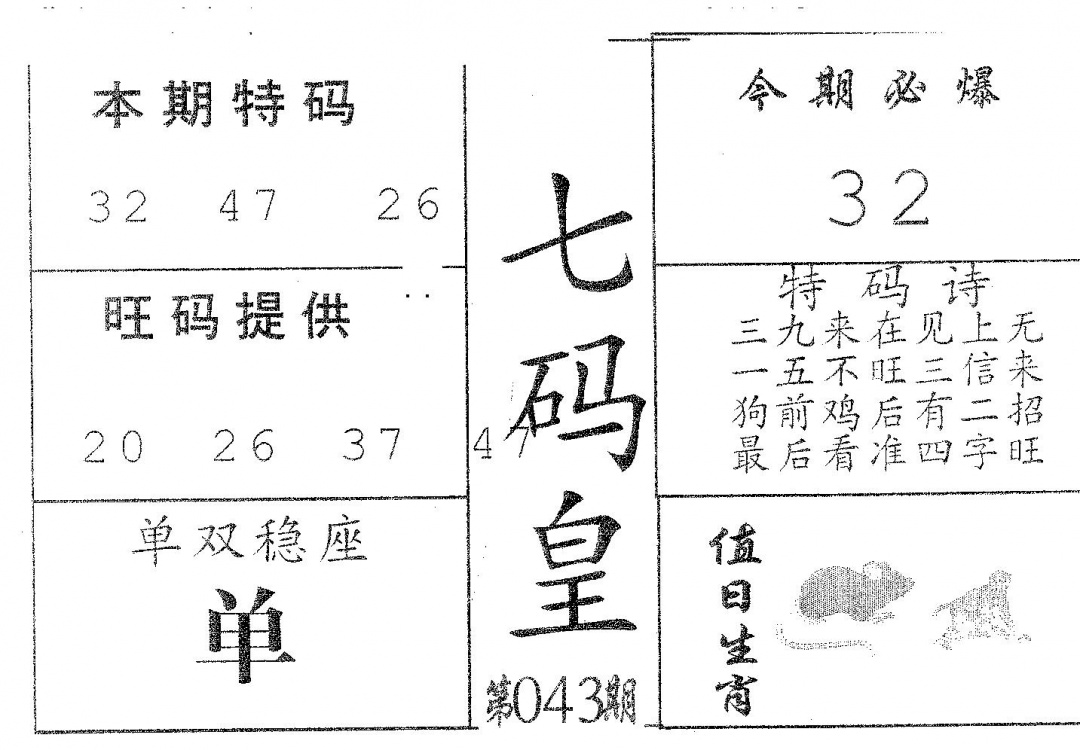 本期特码
32 47 26
旺码提供
20 26 37 47
单双稳座
单
七码皇
第043期
今期必爆
32
特码诗
三九来在见上无
一五不旺三信来
狗前鸡后有二招
最后看准四字旺
值日生肖